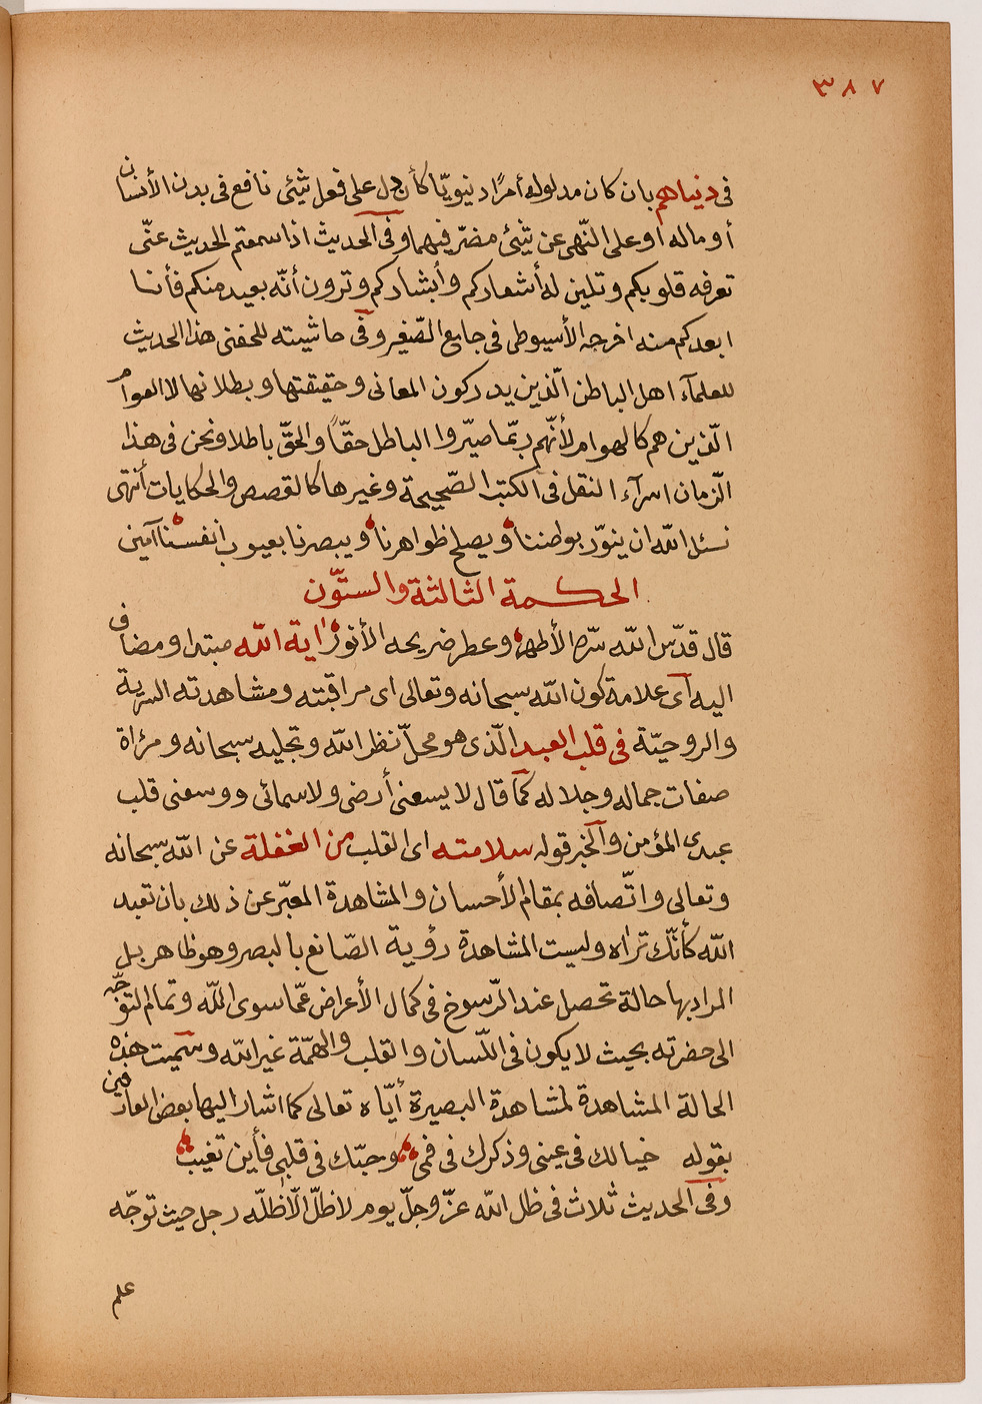 ٣٨٧
فى دنياهم بان كان مدلوله أمرًا دنيويّا كأن دل على فعل شئى نافع فى بدن الأنسان
أو ماله او على النّهى عن شئى مضرّ فيهما وفى الحديث اذا سمعتم الحديث عنّى
تعرفه قلوبكم وتلين له أشعاركم وأبشاركم وترون أنّه بعيد منكم فأنا
ابعدكم منه اخرجه الأسيوطى فى جامع الصّغير وفى حاشيته للحفنى هذا الحديث
للعلمآء اهل الباطن الّذين يدركون المعانى وحقيقتها وبطلانها لا العوام
الّذين هم كالهوام لأنّهم ربّما صيّروا الباطل حقّاً والحقّ باطلا ونحن فى هذا
الزّمان اسرآء النقل فى الكتب الصّحيحة وغيرها كالقصص والحكايات أنتهى
نسئل الله ان ينوّر بواطننا ويصلح ظواهرنا ويبصرنا بعيوب انفسنا آمين
الحكمة الثالثة والستّون
قال قدّس الله سرّه الأطهر وعطر ضريحه الأنور اٰية الله مبتدا ومضاف
اليه آى علامة كون الله سبحانه وتعالى اى مراقبته ومشاهدته السرية
والروحيّة فى قلب العبد الّذى هو محلّ نظر الله وتجليه سبحانه ومرٔاة
صفات جماله وجلاله كما قال لا يسعنى أرضى ولا سمائى ووسعنى قلب
عبدى المؤمن والخبر قوله سلامته اى القلب من الغفلة عن الله سبحانه
وتعالى واتّصافه بمقام الأحسان والمشاهدة المعبّر عن ذلك بان تعبد
الله كأنّك تراه وليست المشاهدة رؤية الصّانع بالبصر وهو ظاهر بل
المراد بها حالة تحصل عند الرّسوخ فى كمال الأعراض عمّا سوى اللّه وتمام التوجّه
الى حضرته بحيث لا يكون فى اللّسان والقلب والهمّة غير الله وسمّيت هذه
الحالة المشاهدة لمشاهدة البصيرة أيّاه تعالى كما اشار اليها بعض العارفين
بقوله خيالك فى عينى وذكرك فى فمى وحبّك فى قلبى فأين تغيب
وفى الحديث ثلاث فى ظل الله عزّ وجلّ يوم لا ظلّ الّا ظلّه رجل حيث توجّه
علم